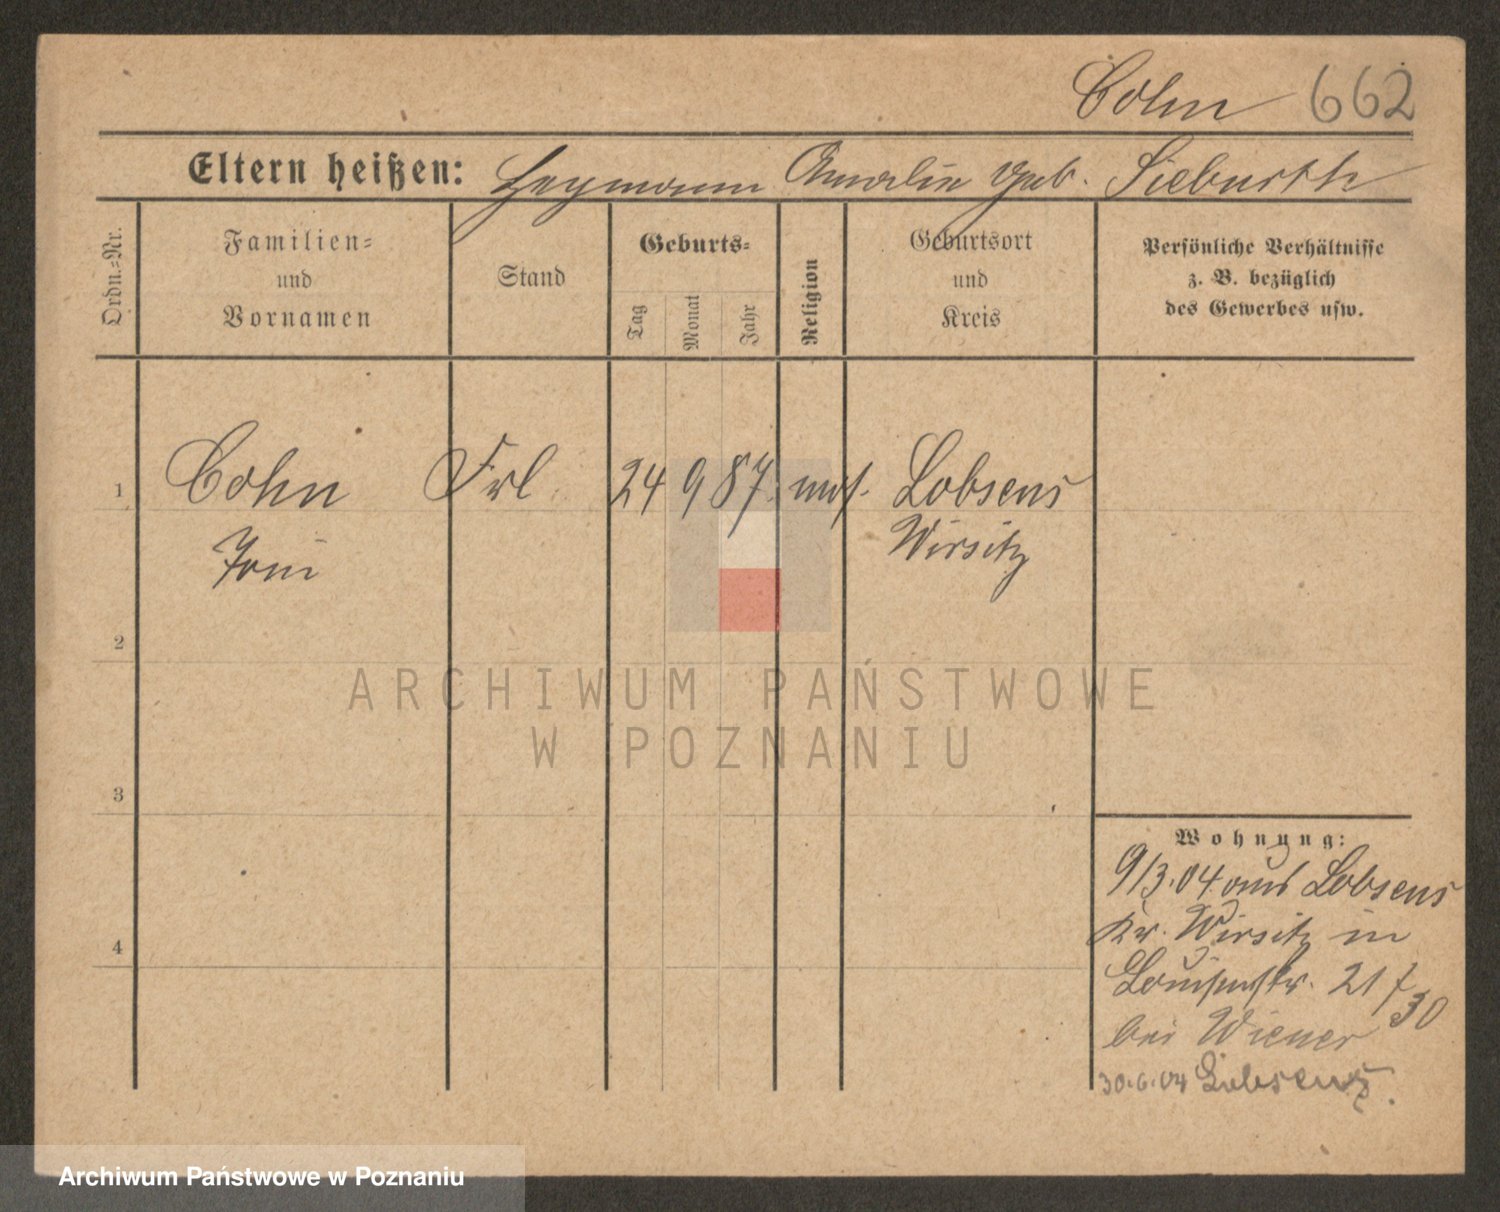 Cohn 662
Eltern heißen: Heymann Amalie geb. Sieburth
Ordn.-Nr.
Familien-
und
Vornamen
Stand
Geburts-
Tag
Monat
Jahr
Religion
Geburtsort
und
Kreis
Persönliche Verhältnisse
z. B. bezüglich
des Gewerbes usw.
1 Cohn Frl 24 9 87. mos. Lobsens
Toni Wirsitz
2
3
4
Wohnung:
9/3.04 aus Lobsens
Kr. Wirsitz in
Louisenstr. 21
bei Wiener 30
30.6.04 Lobsens.
ARCHIWUM PAŃSTWOWE
W POZNANIU
Archiwum Państwowe w Poznaniu